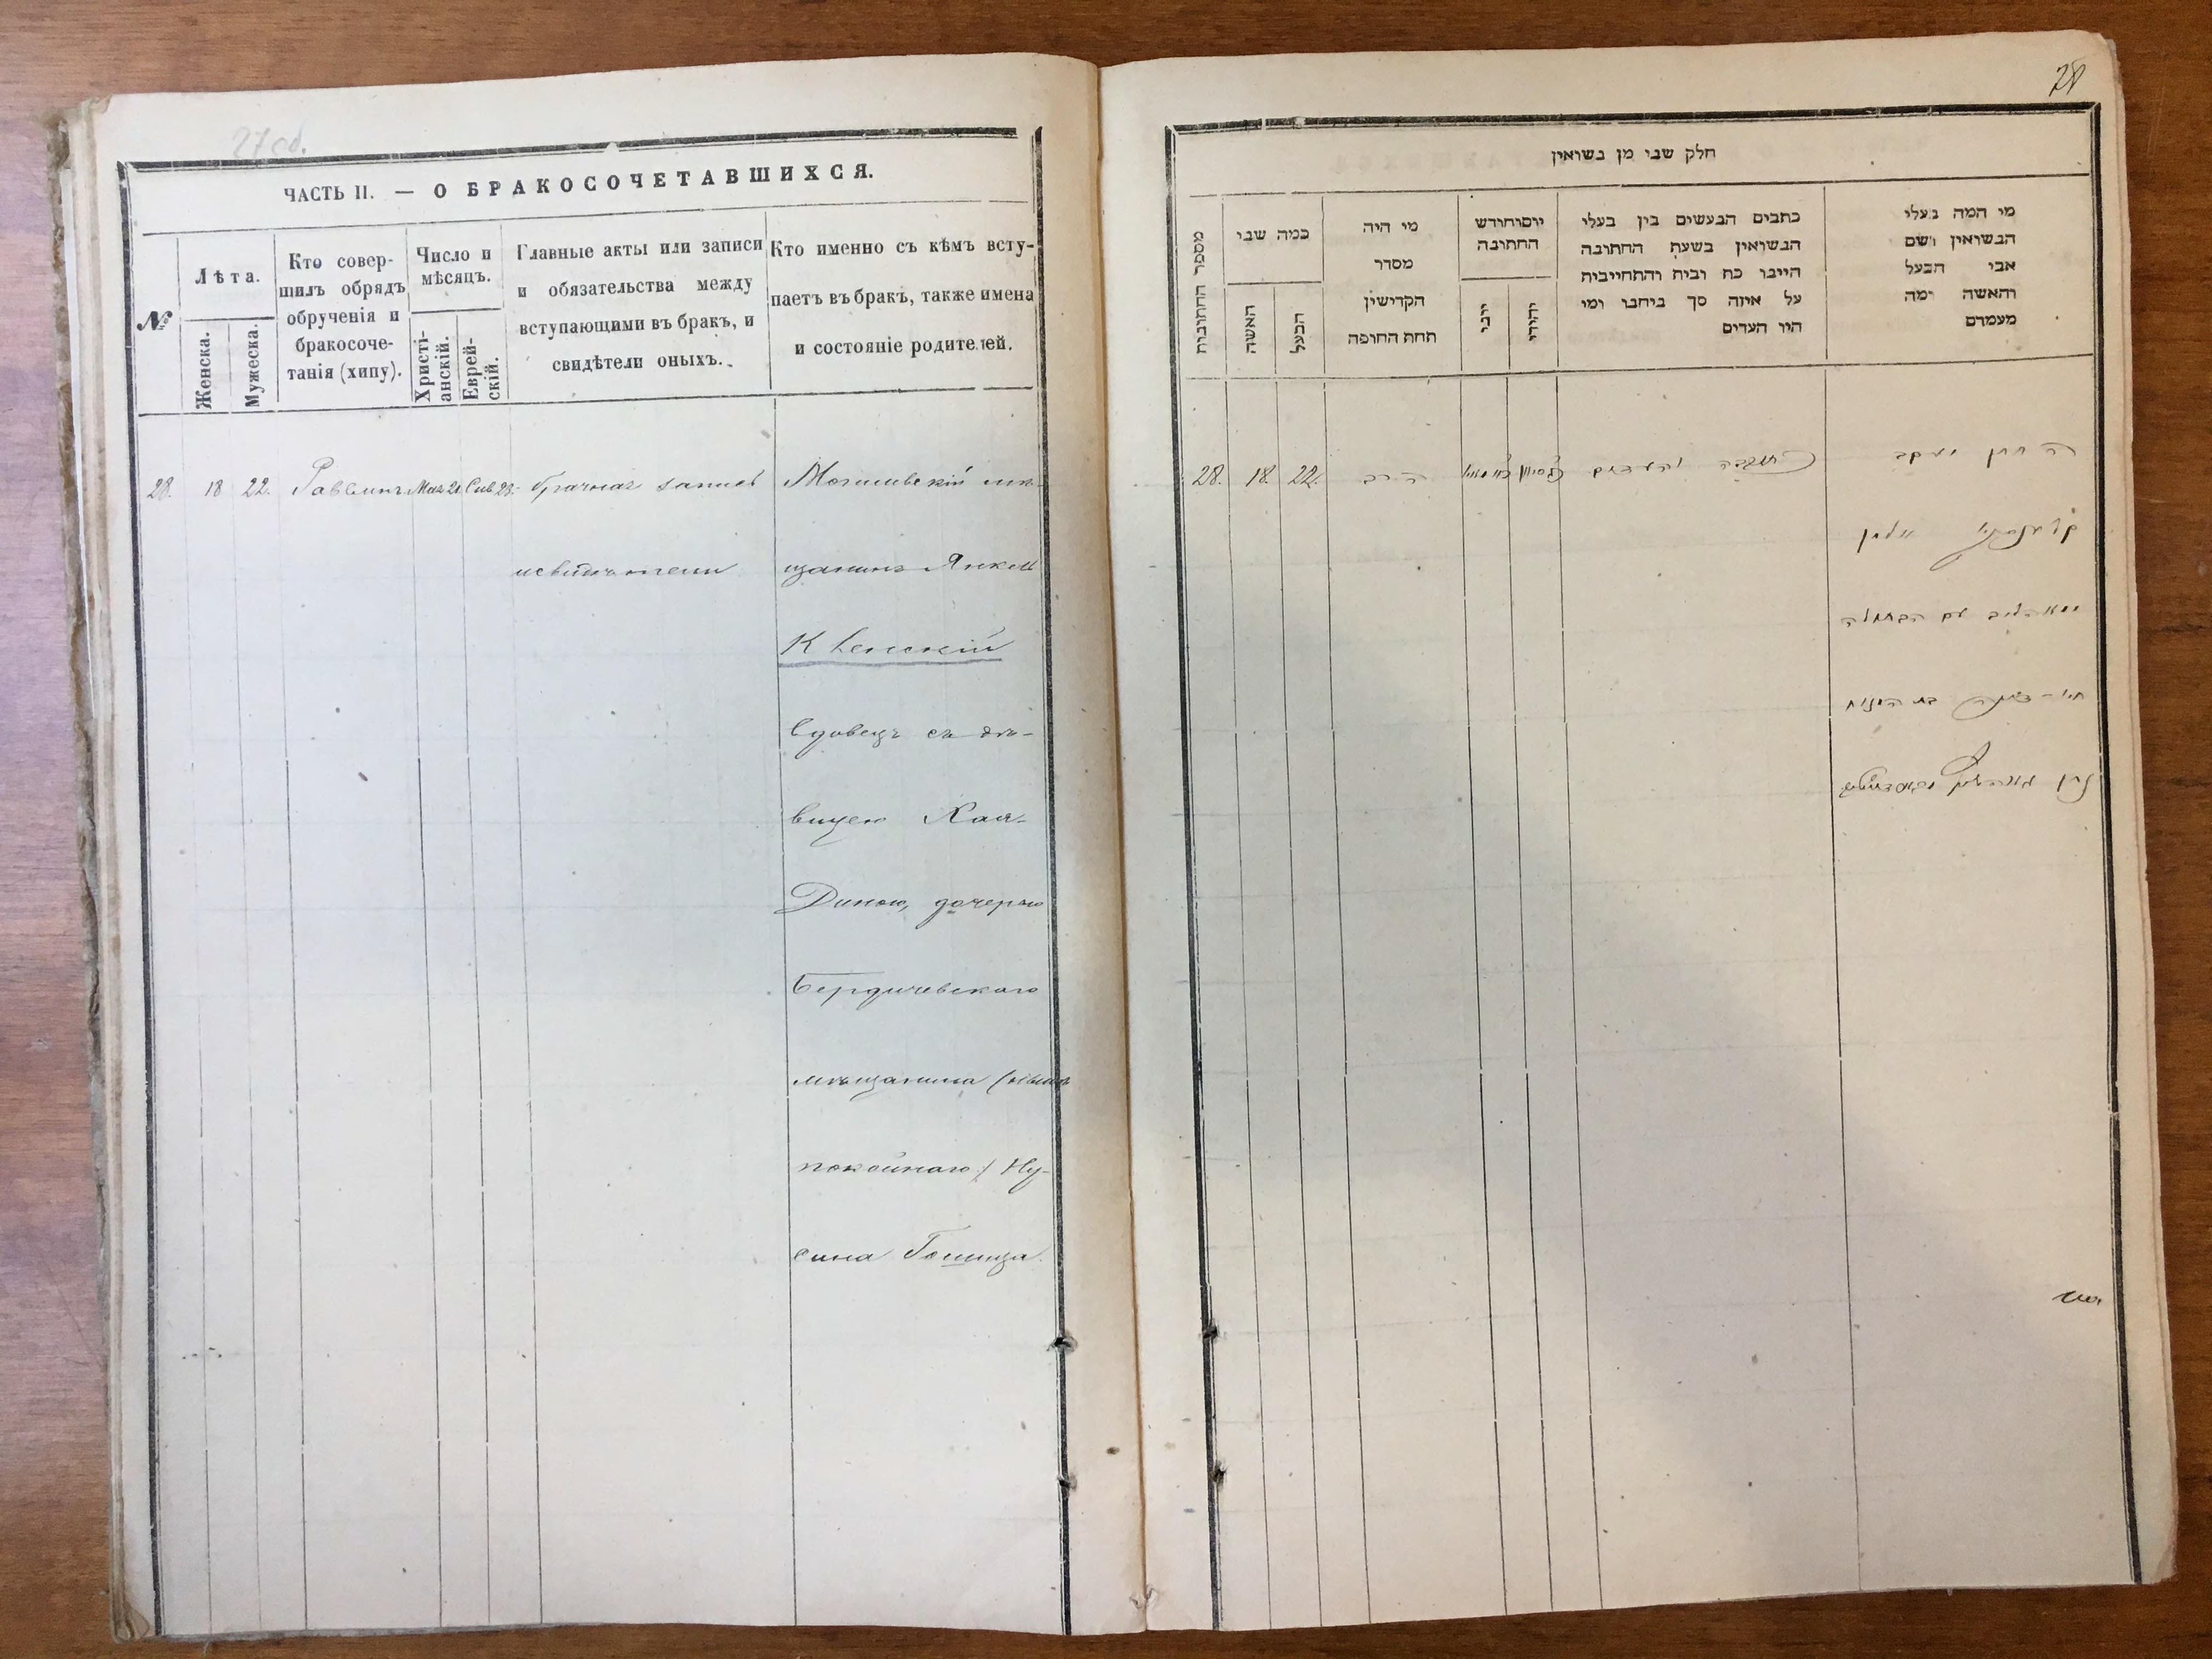 27 об.
ЧАСТЬ II. — О БРАКОСОЧЕТАВШИХСЯ.
№
Лѣта.
Женска.
Мужеска.
Кто совер-
шилъ обрядъ
обрученія и
бракосоче-
танія (хипу).
Число и
мѣсяцъ.
Христі-
анскій.
Еврей-
скій.
Главные акты или записи
и обязательства между
вступающими въ бракъ, и
свидѣтели оныхъ.
Кто именно съ кѣмъ всту-
паетъ въ бракъ, также имена
и состояніе родителей.
28. 18 22. Раввинъ. Мая 21. Сив. 23. брачная запись Могилевскій мѣ-
и свидѣтели щанинъ Янкель
Квенскій
вдовецъ съ дѣ-
вицею Хая-
Диною, дочерью
Бердичевскаго
мѣщанина (нынѣ
покойнаго) Ну-
сина Гошица.
28
חלק שני מן נשואין
מספר החתונות
כמה שני
האשה
הבעל
מי היה
מסדר
הקדישין
תחת החופה
יום וחודש
החתונה
ייני
יהודי
כתבים הנעשים בין בעלי
הנשואין בשעת החתונה
היינו כח ובית והתחייבית
על איזה סך ביחבו ומי
היו העדים
מי המה בעלי
הנשואין ושם
אבי הבעל
והאשה ומה
מעמדם
28. 18. 22. הרב כתובה והעדים החתן יעקב
אלמן
עם הבתולה
חיה - דינה בת המנוח
נתן